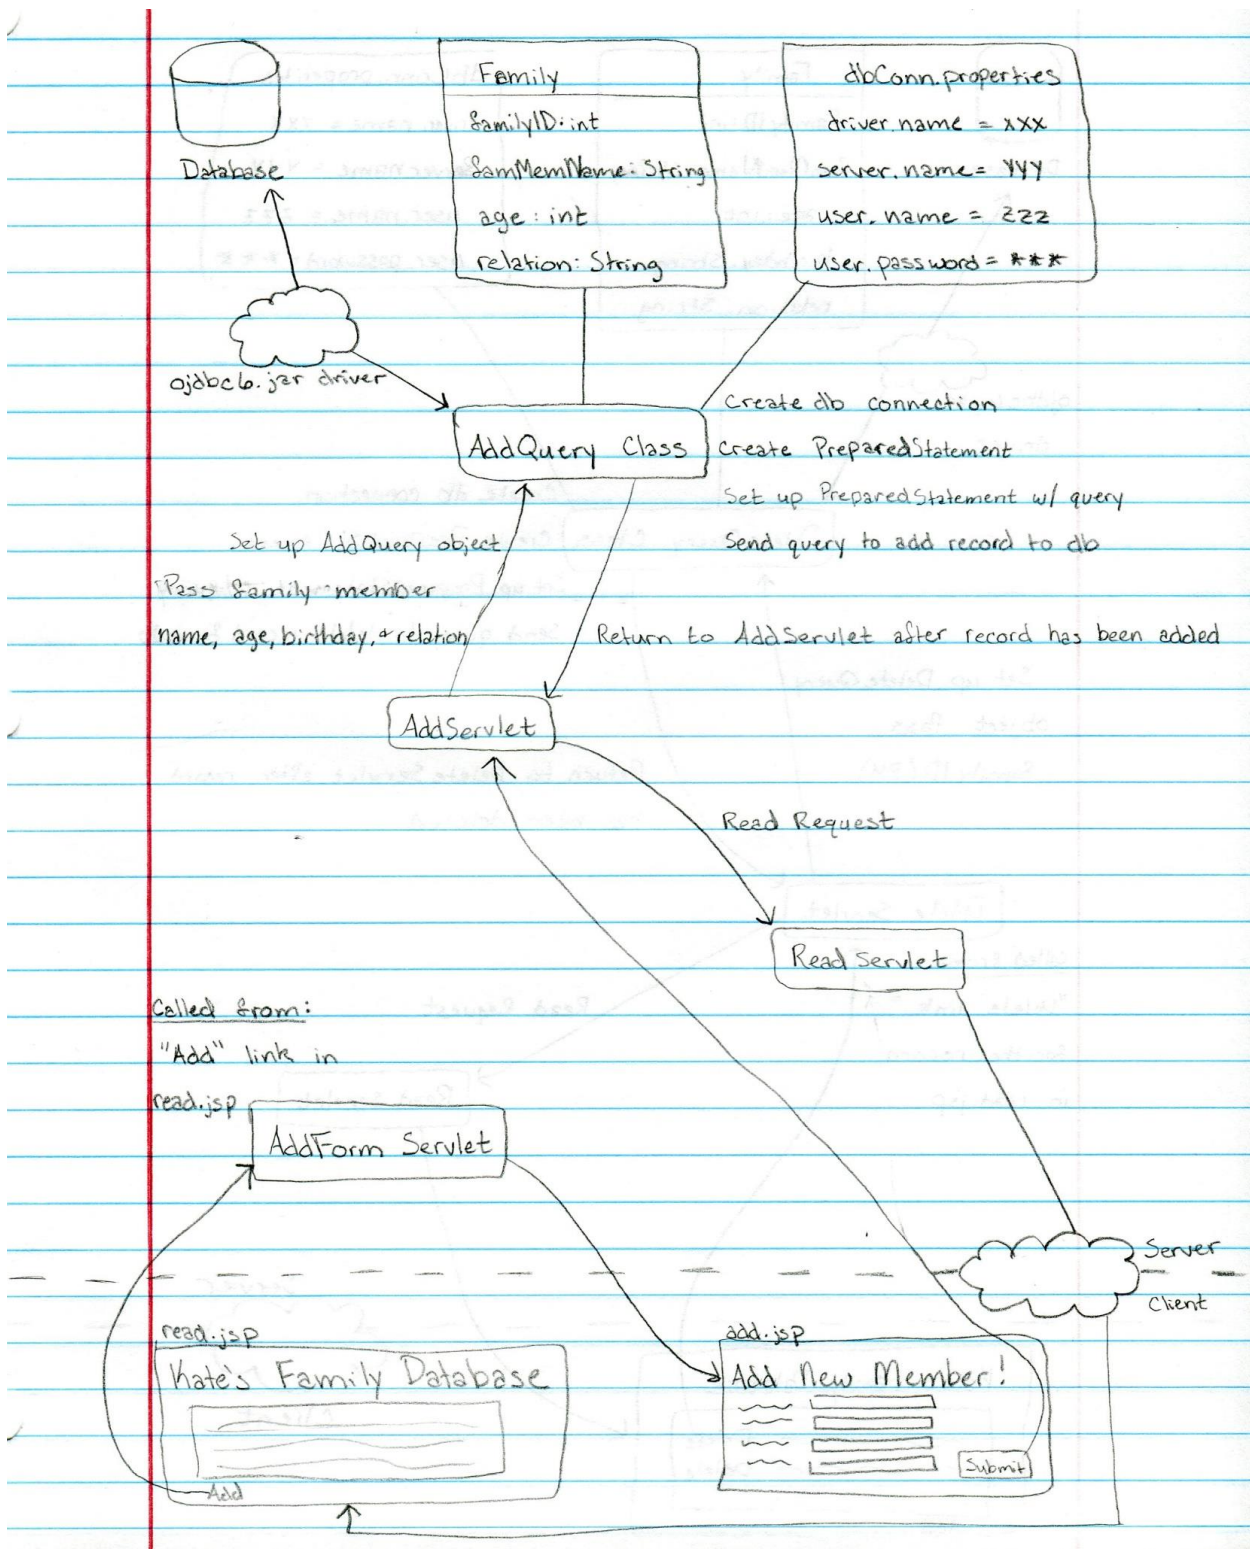 Family
familyID: int
famMemName: String
age: int
relation: String
dbConn.properties
driver.name = xxx
server.name = yyy
user.name = zzz
user.password = ***
Database
ojdbc6.jar driver
AddQuery Class
Create db connection
Create PreparedStatement
Set up PreparedStatement w/ query
Send query to add record to db
Set up AddQuery object
Pass family member
name, age, birthday, + relation
Return to AddServlet after record has been added
AddServlet
Read Request
Read Servlet
Called from:
"Add" link in
read.jsp
AddForm Servlet
Server
Client
read.jsp
Kate's Family Database
Add
add.jsp
Add New Member!
Submit